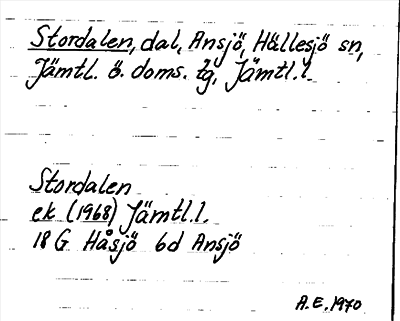 Stordalen, dal, Ansjö, Hällesjö sn,
Jämtl. ö. doms. tg, Jämtl.l.
Stordalen
ek (1968) Jämtl.l.
18 G Håsjö 6d Ansjö
A.E. 1970